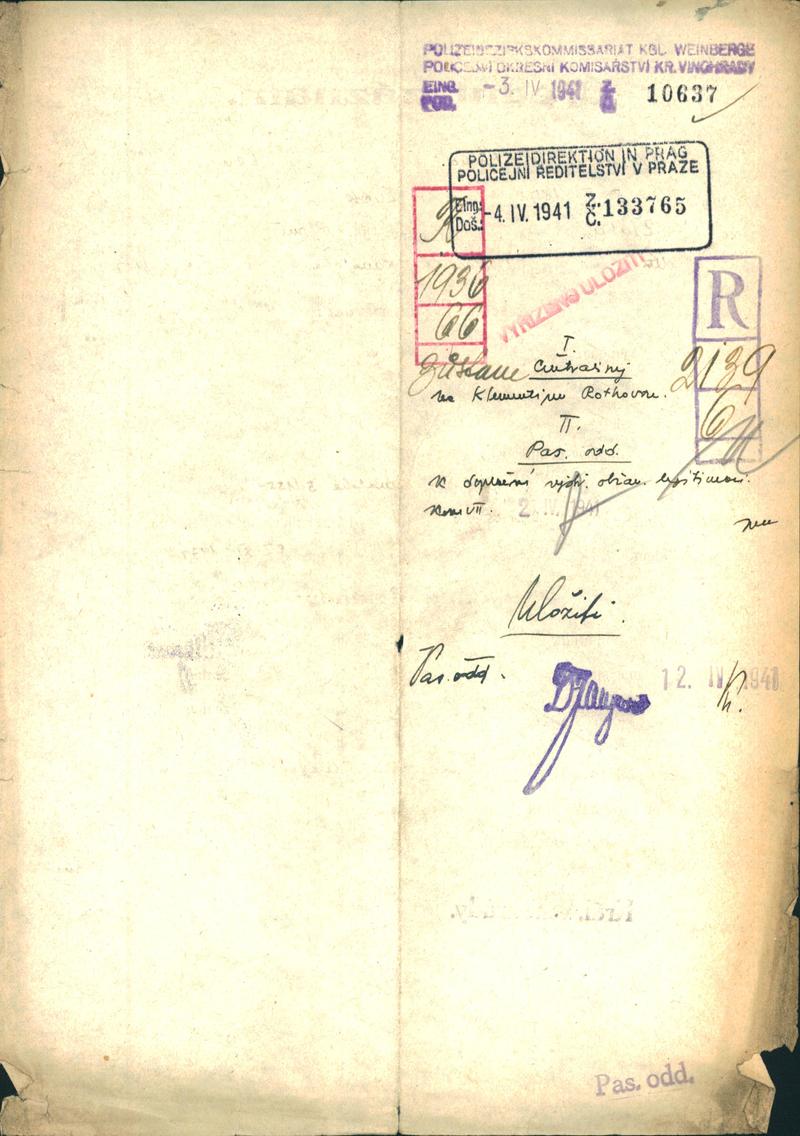 POLIZEIBEZIRKSKOMMISSARIAT KGL. WEINBERGE
POLICEJNÍ OKRESNÍ KOMISAŘSTVÍ KR. VINOHRADY
EING. POD. -3. IV 1941 Z Č 10637
POLIZEIDIREKTION IN PRAG
POLICEJNÍ ŘEDITELSTVÍ V PRAZE
Eing: Doš.: -4. IV. 1941 Z. Č. 133765
R
1936
66
VYŘÍZENO ULOŽITI
R
2139
6
I.
zůstane
na Klementinu Rothovou.
II.
Pas. odd.
k doplnění občan. legitimací.
2. IV. 1941
Uložiti.
Pas. odd.
12. IV. 1941
Pas. odd.